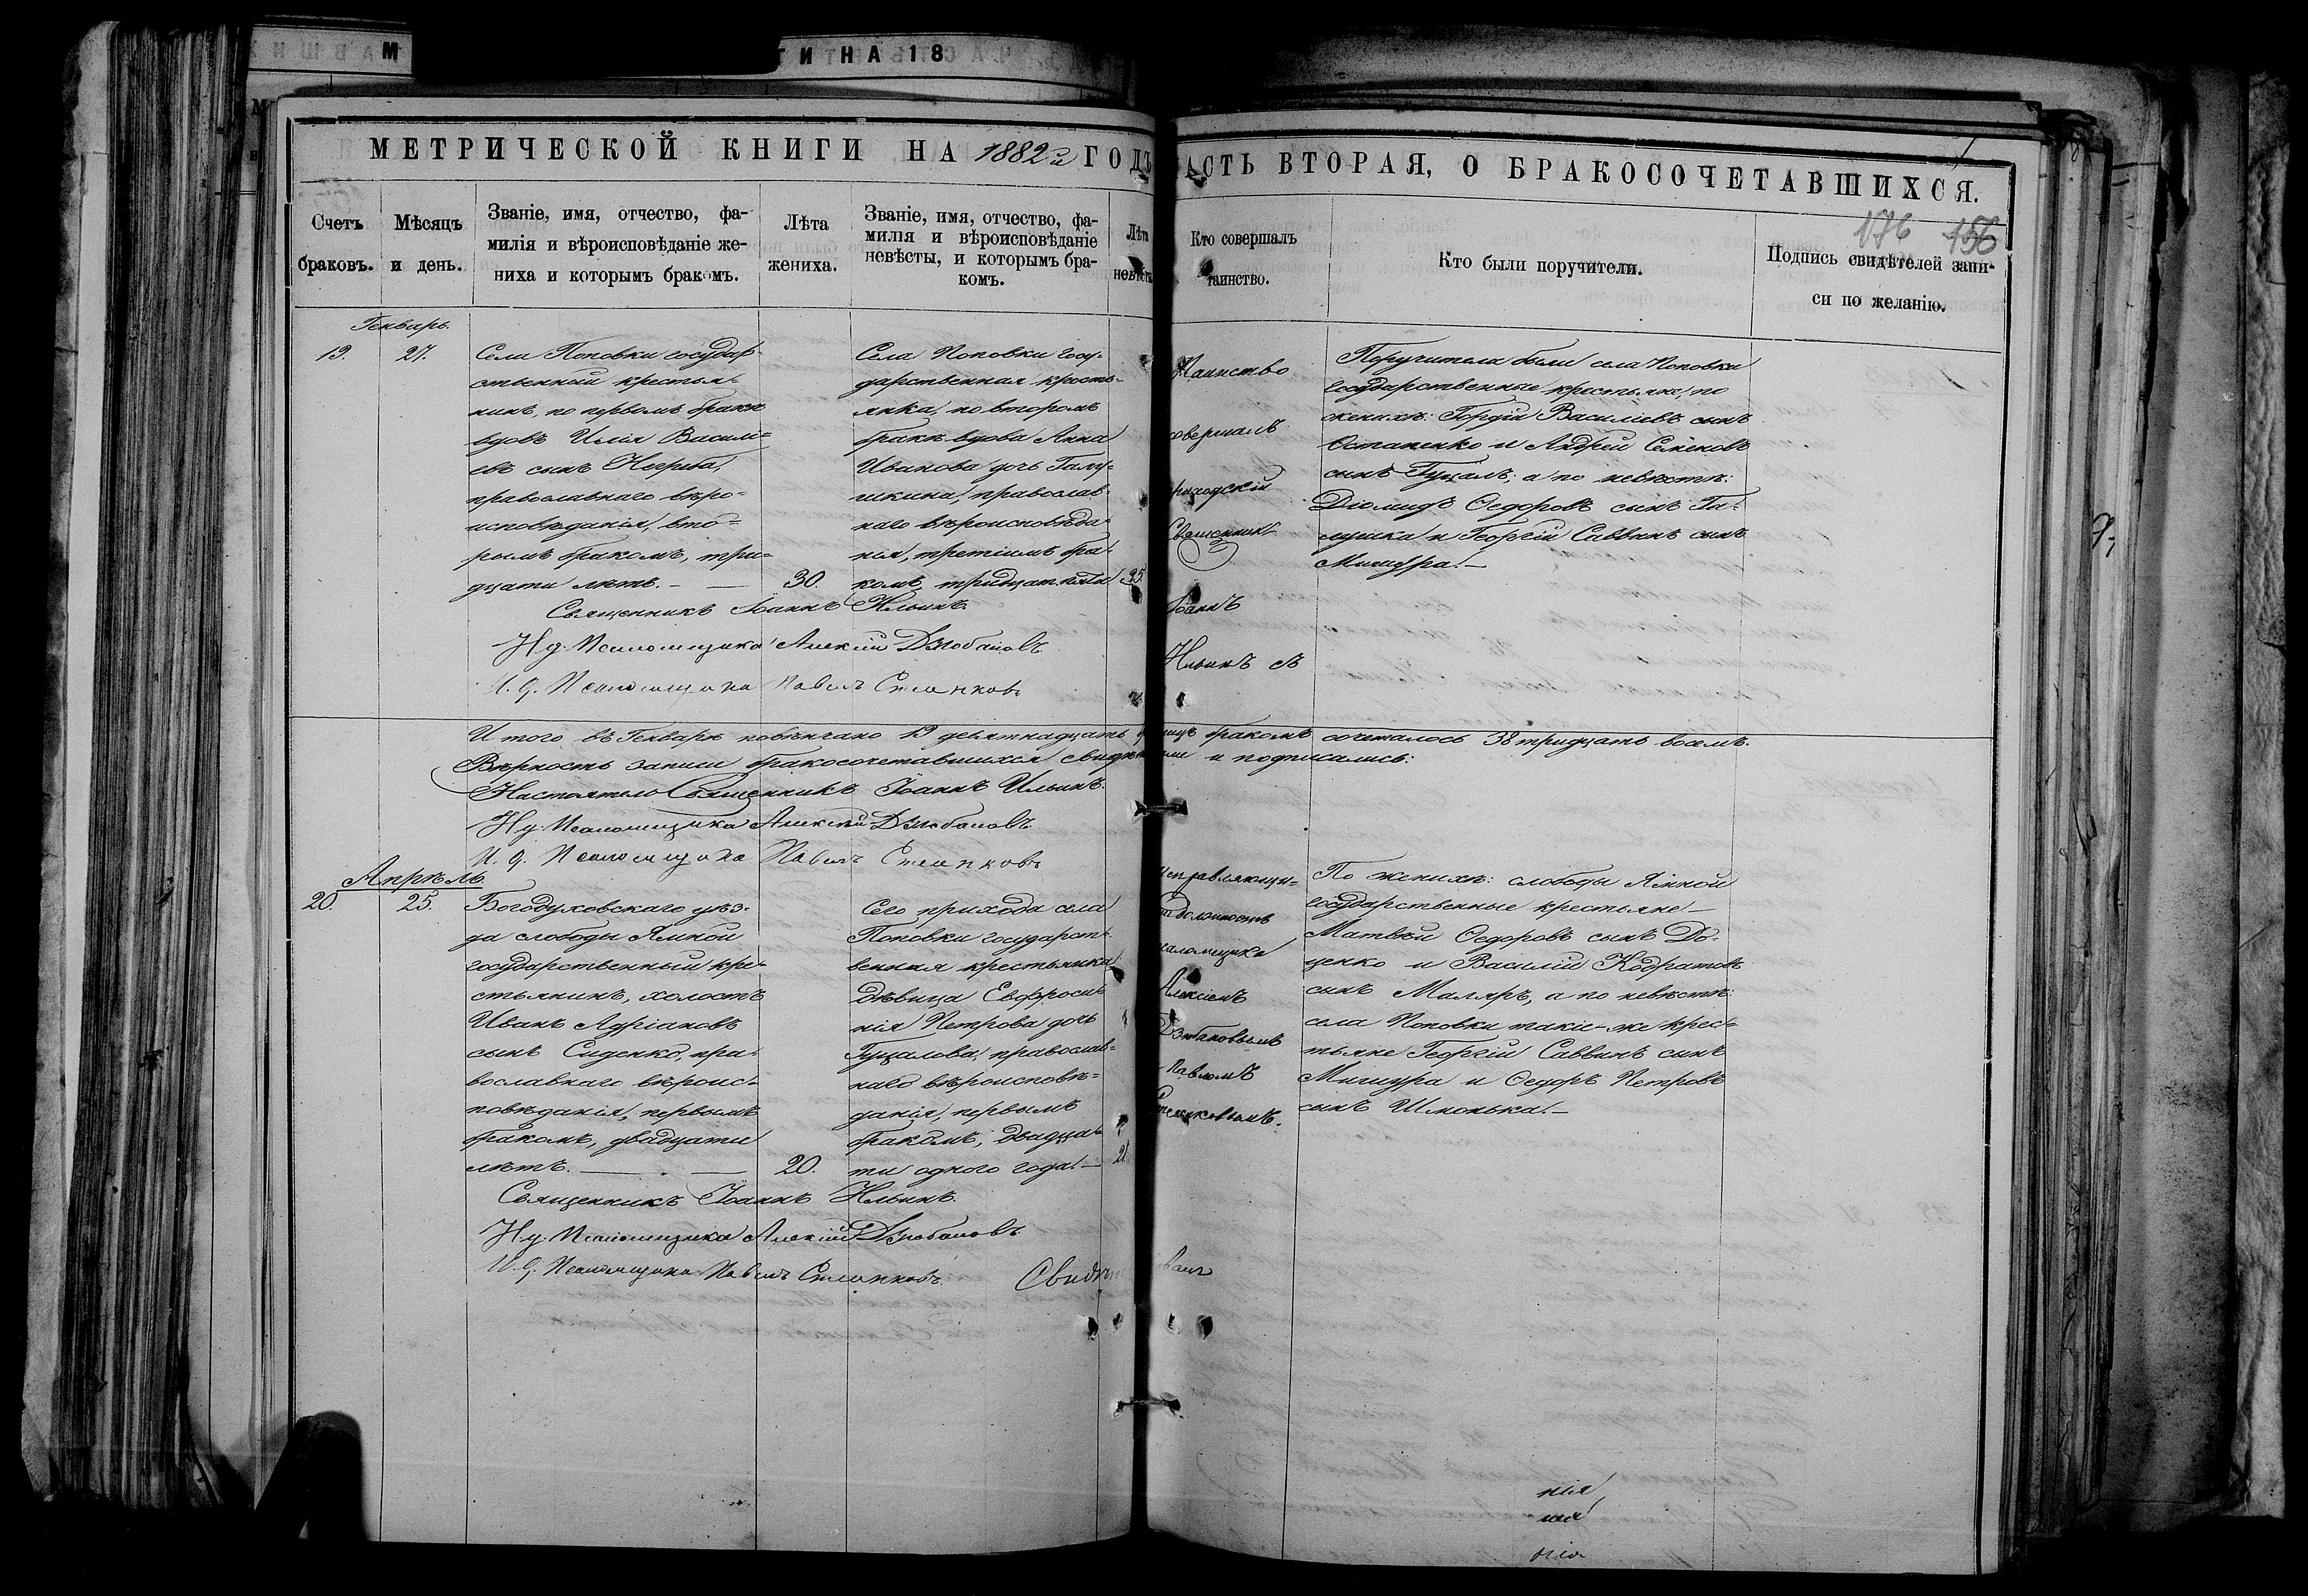 МЕТРИЧЕСКОЙ КНИГИ НА 1882й ГОДЪ
АСТЬ ВТОРАЯ, О БРАКОСОЧЕТАВШИХСЯ.
176 156
Счетъ браковъ.
Мѣсяцъ и день.
Званіе, имя, отчество, фа-
милія и вѣроисповѣданіе же-
ниха и которымъ бракомъ.
Лѣта
жениха.
Званіе, имя, отчество, фа-
милія и вѣроисповѣданіе
невѣсты, и которымъ бра-
комъ.
Лѣта
невѣсты
Кто совершалъ
таинство.
Кто были поручители.
Подпись свидѣтелей запи-
си по желанію.
Генварь.
19. 27.
Села Поповки государ-
ственный крестья-
нинъ, по первомъ бракѣ
вдовъ Илія Василі-
евъ сынъ Негреба,
православнаго вѣро-
исповѣданія, вто-
рымъ бракомъ, три-
дцати лѣтъ.
30.
Села Поповки госу-
дарственная кресть-
янка, по второмъ
бракѣ вдова Анна
Иванова дочь Галу-
шкина, православ-
наго вѣроисповѣда-
нія, третіимъ бра-
комъ, тридцати пяти
35.
Таинство
совершалъ
приходскій
Священникъ
Іоаннъ
Ильинъ съ
Поручители были села Поповки
государственные крестьяне, по
женихѣ: Гордій Василіевъ сынъ
Остапенко и Андрей Семеновъ
сынъ Гуцалъ; а по невѣстѣ:
Діомидъ Ѳедоровъ сынъ Га-
лушка и Георгій Саввинъ сынъ
Мишура.
Священникъ Іоаннъ Ильинъ.
И. д. Псаломщика Алексій Дзюбановъ
И. д. Псаломщика Павелъ Стеанковъ
Итого въ Генварѣ повѣнчано 19 девятнадцать
лицъ бракомъ сочеталось 38 тридцать восемь.
Вѣрность записи бракосочетавшихся свидѣтели и подписались:
Настоятель Священникъ Іоаннъ Ильинъ.
И. д. Псаломщика Алексій Дзюбановъ
И. д. Псаломщика Павелъ Стеанковъ
Апрѣль.
20. 25.
Богодуховскаго уѣз-
да слободы Ямной
государственный кре-
стьянинъ, холостъ
Иванъ Адріановъ
сынъ Сиденко, пра-
вославнаго вѣроис-
повѣданія, первымъ
бракомъ, двадцати
лѣтъ.
20.
Сего прихода села
Поповки государст-
венная крестьянка
дѣвица Евфроси-
нія Петрова дочь
Гуцалова, православ-
наго вѣроисповѣ-
данія, первымъ
бракомъ, двадца-
ти одного года.
21.
Исправляющи-
должность
псаломщика
Алексіемъ
Дзюбановымъ
Павломъ
По женихѣ: слободы Ямной
государственные крестьяне
Матвѣй Ѳедоровъ сынъ До-
ценко и Василій Кодратовъ
сынъ Маляръ, а по невѣстѣ:
села Поповки такіе-же крес-
тьяне Георгій Саввинъ сынъ
Мишура и Ѳедоръ Петровъ
сынъ Шмонька.
Священникъ Іоаннъ Ильинъ.
И. д. Псаломщика Алексій Дзюбановъ
И. д. Псаломщика Павелъ Стеанковъ.